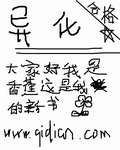 异化
合格
大家好我是
香 这是我
的新书
www.qidian.com